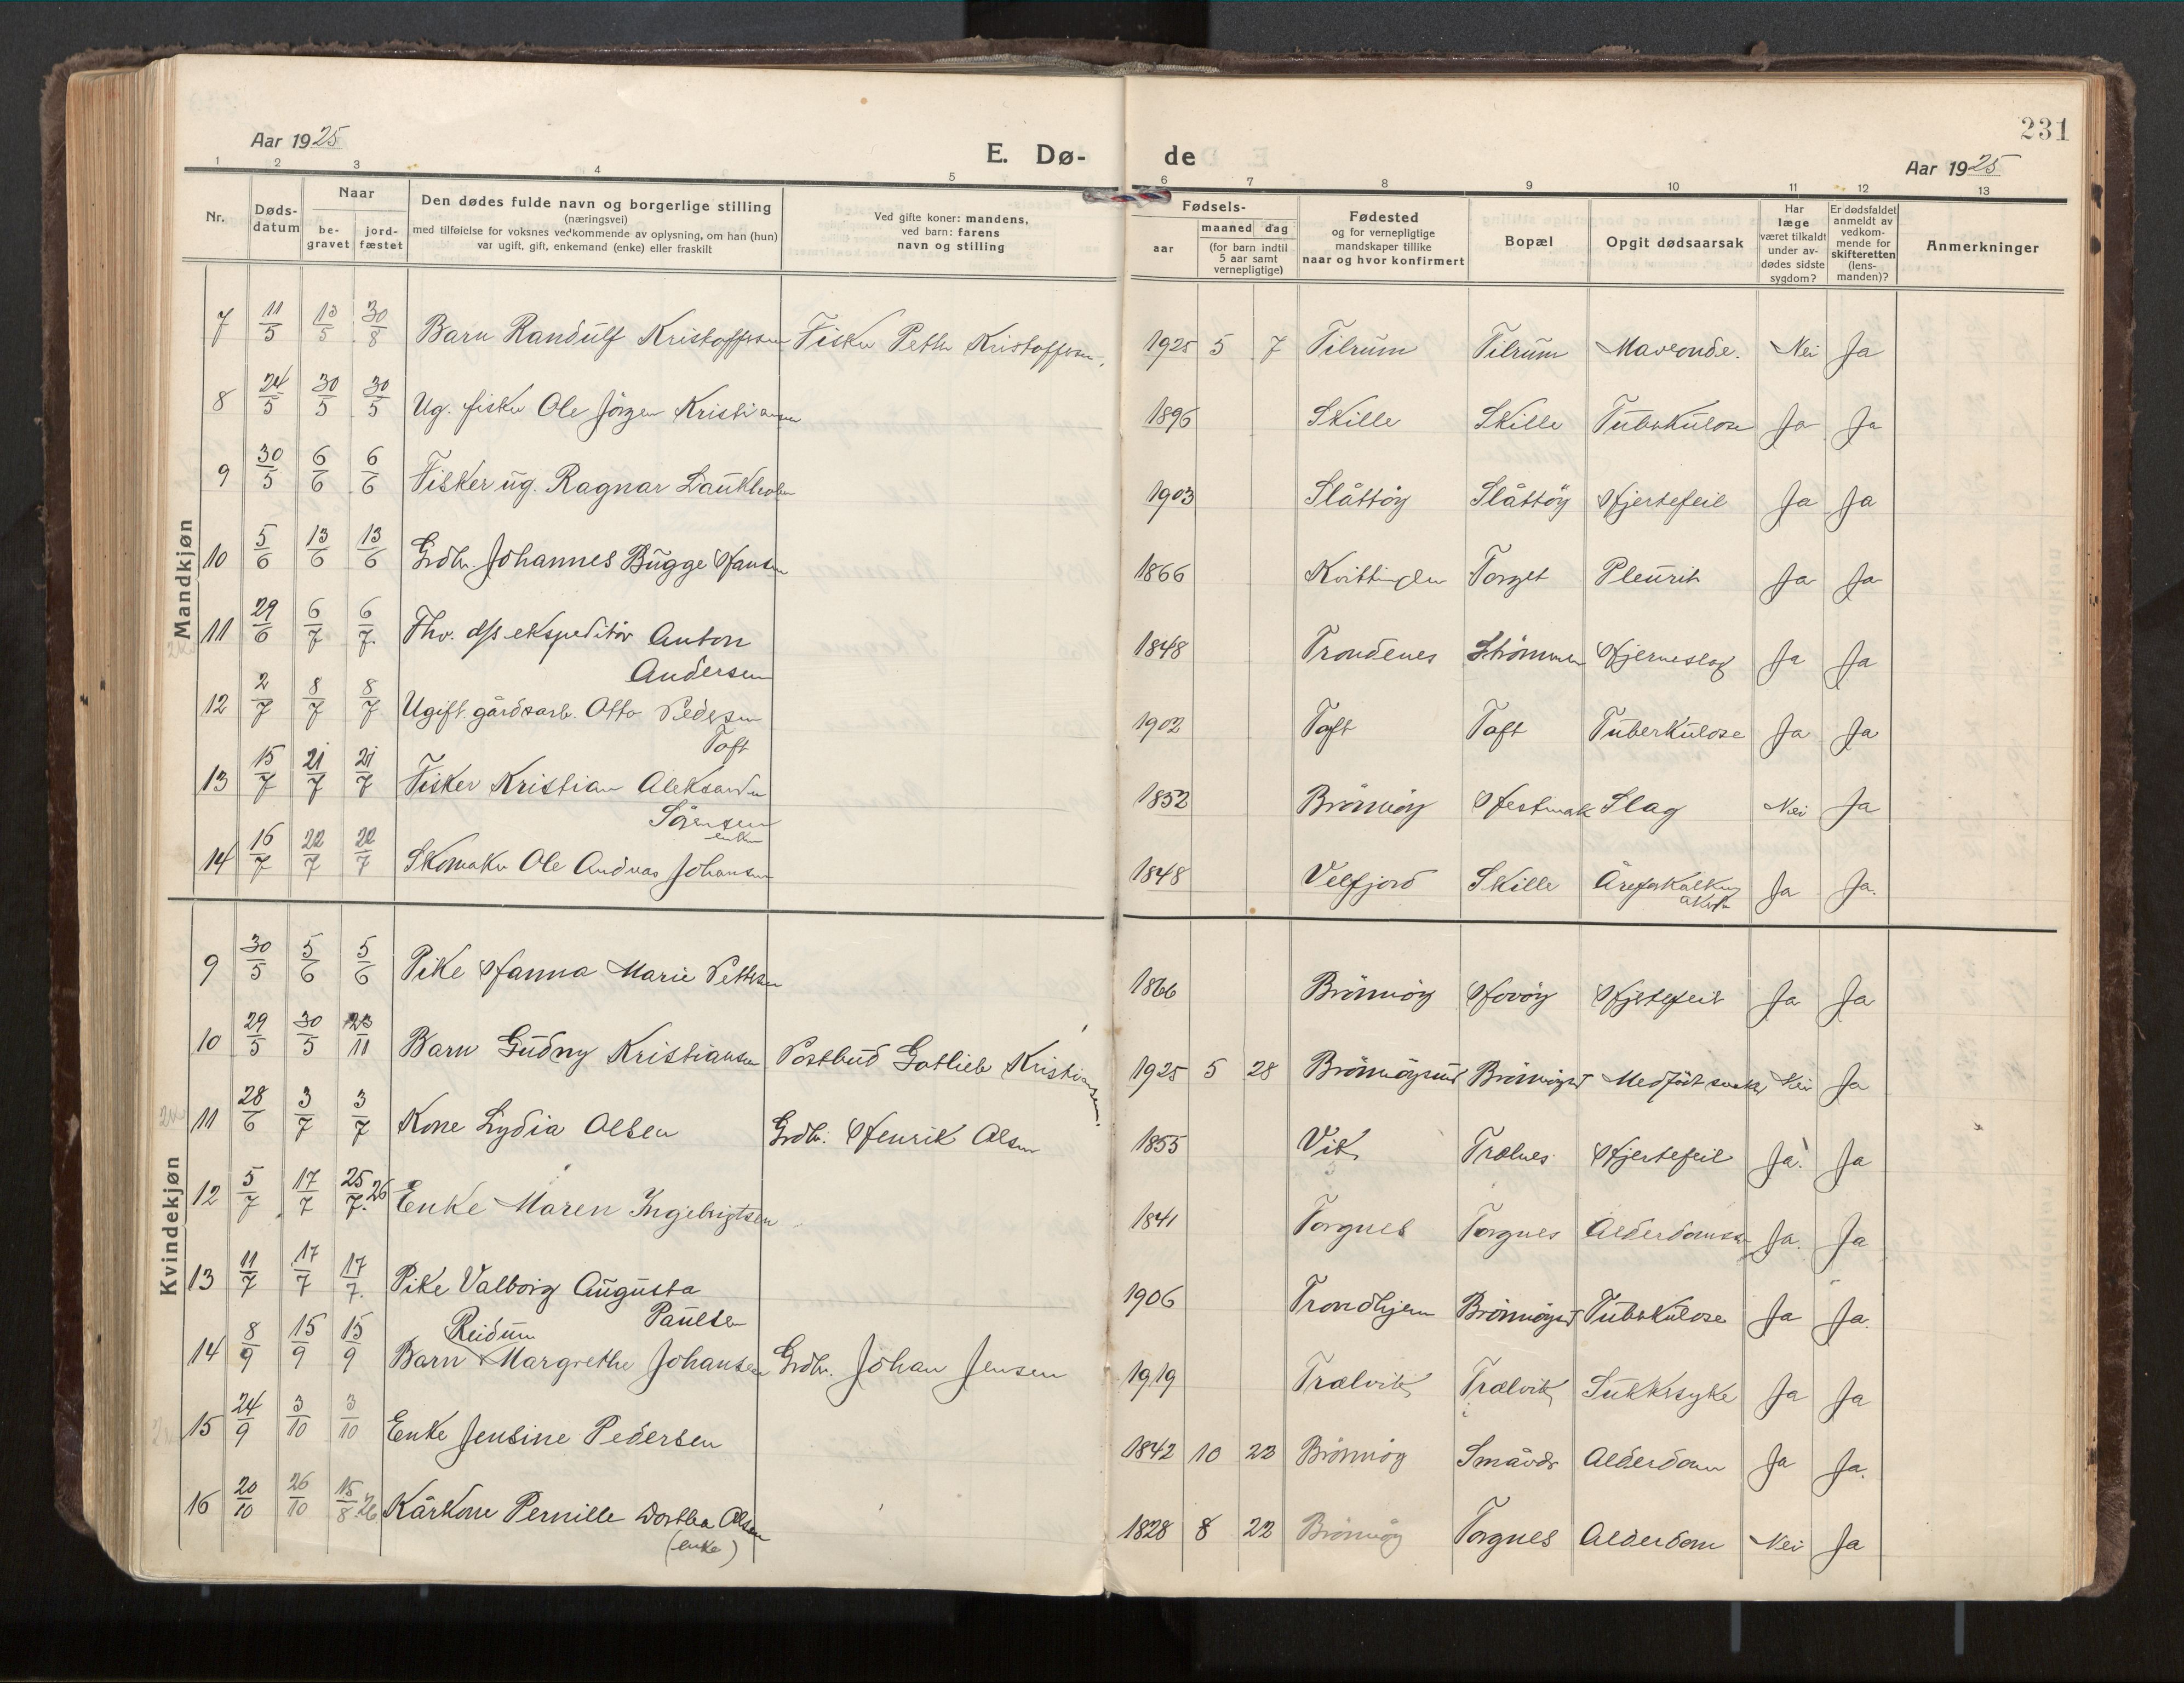 231
Aar 1925
E. Dø-
de
Aar 1925
1 2 3 4 5 6 7 8 9 10 11 12 13
Nr.
Døds-
datum
Naar
be-
gravet
jord-
fæstet
Den dødes fulde navn og borgerlige stilling
(næringsvei)
med tilføielse for voksnes vedkommende av oplysning, om han (hun)
var ugift, gift, enkemand (enke) eller fraskilt
Ved gifte koner: mandens,
ved barn: farens
navn og stilling
Fødsels-
aar
maaned dag
(for barn indtil
5 aar samt
vernepligtige)
Fødested
og for vernepligtige
mandskaper tillike
naar og hvor konfirmert
Bopæl
Opgit dødsaarsak
Har
læge
været tilkaldt
under av-
dødes sidste
sygdom?
Er dødsfaldet
anmeldt av
vedkom-
mende for
skifteretten
(lens-
manden)?
Anmerkninger
Mandkjøn
7 11/5 13/5 30/8 Barn Randulf Kristoffersen Fisker Petter Kristoffersen, 1925 5 7 Tilrum Tilrum Maveonde. Nei Ja
8 24/5 30/5 30/5 Ug. fisker Ole Jörgen Kristiansen 1896 Skille Skille Tuberkulose Ja Ja
9 30/5 6/6 6/6 Fisker ug. Ragnar Laukholm 1903 Slåttöy Slåttöy Hjertefeil Ja Ja
10 5/6 13/6 13/6 Grdbr. Johannes Bugge Hansen 1866 Torget Pleurit Ja Ja
11 29/6 6/7 6/7. Fhv. d/s ekspeditör Anton
Andersen 1848 Trondenes Strömmen Hjerneslag Ja Ja
12 2/7 8/7 8/7 Ugift gårdsarb. Otto Pedersen
Toft 1902 Toft Toft Tuberkulose Ja Ja
13 15/7 21/7 21/7 Fisker Kristian Aleksander
Sörensen 1852 Brönnöy Hestmak Slag Nei Ja
enkem
14 16/7 22/7 22/7 Skomaker Ole Andreas Johansen 1848 Velfjord Skille Åreforkalkning Ja Ja.
Kvindekjøn
9 30/5 5/6 5/6 Pike Hanna Marie Pettersen 1866 Brönnöy Horöy Hjertefeil Ja Ja
10 29/5 30/5 23/11 Barn Gudny Kristiansen Postbud Gotlieb Kristiansen. 1925 5 28 Brönnöysund Brönnöysd Medfödt svakh. Nei Ja
11 28/6 3/7 3/7 Kone Lydia Olsen Grdbr. Henrik Olsen 1855 Vik Trælnes Hjertefeil Ja. Ja
12 5/7 17/7 25/7. 26 Enke Maren Ingebrigtsen 1841 Torgnes Torgnes Alderdomssv. Ja. Ja
13 11/7 17/7 17/7. Pike Valborg Augusta
Paulsen 1906 Trondhjem Brönnöysd Tuberkulose Ja Ja.
Reidun
14 8/9 15/9 15/9 Barn Margrethe Johansen Grdbr. Johan Jensen 1919 Trælvik Trælvik Sukkersyke Ja Ja
15 24/9 3/10 3/10 Enke Jensine Pedersen 1842 10 22 Brönnöy Alderdom Ja Ja.
16 20/10 26/10 15/8 26 Kårkone Pernille Dorthea Olsen 1828 8 22 Brönnöy Torgnes Alderdom Nei Ja
(enke)